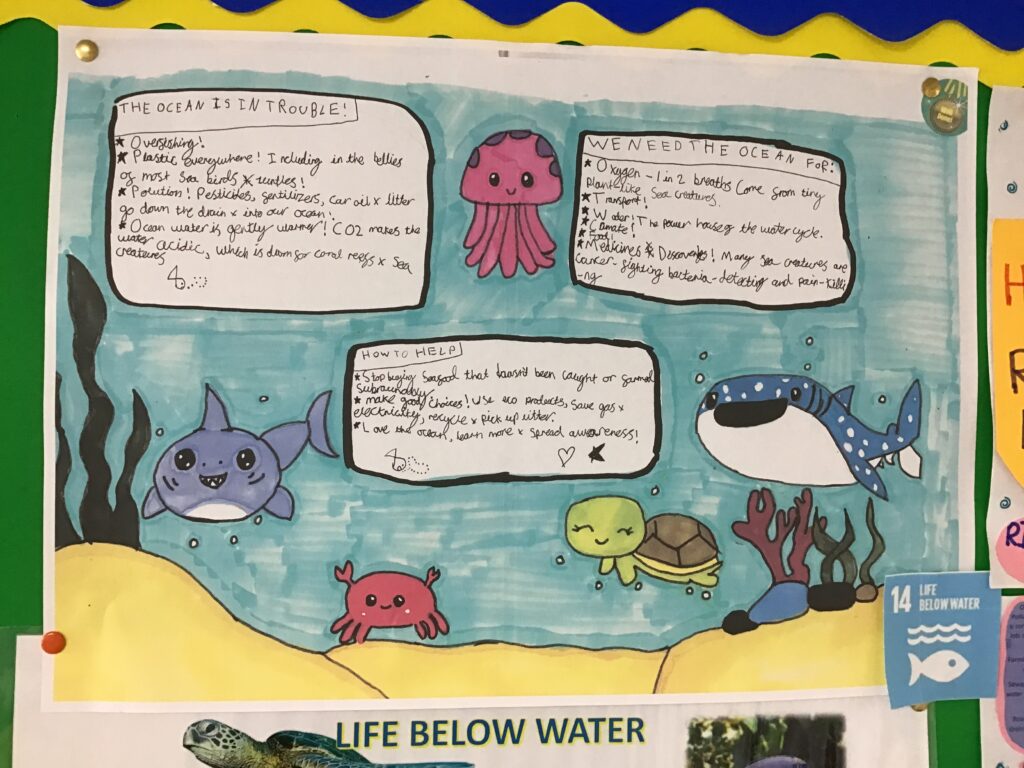 THE OCEAN IS IN TROUBLE!
★ Overfishing!
★ Plastic everywhere! Including in the bellies
of most sea birds & turtles!
★ Polution! Pesticides, fertilizers, car oil & litter
go down the drain & into our ocean!
★ Ocean water is gently warmer! CO2 makes the
water acidic, which is doom for coral reefs & sea
creatures
WE NEED THE OCEAN FOR:
★ Oxygen - 1 in 2 breaths come from tiny
plant-like sea creatures.
★ Transport!
★ Water! The power house of the water cycle.
★ Climate!
★ Food!
★ Medicines & Discoveries! Many sea creatures are
cancer-fighting bacteria-detecting and pain-killi
-ng
HOW TO HELP
★ Stop buying seafood that hasn't been caught or farmed
★ make good choices! Use eco products, save gas &
electricity, recycle & pick up litter.
★ Love the ocean, learn more & spread awareness!
14 LIFE
BELOW WATER
LIFE BELOW WATER